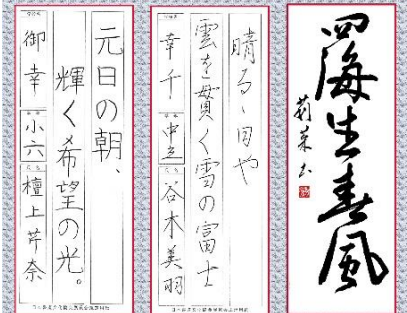 四海生春風
晴るゝ日や
雲を貫く雪の富士
幸千 谷木美羽
元日の朝、
輝く希望の光。
御幸 小六 檀上芹奈